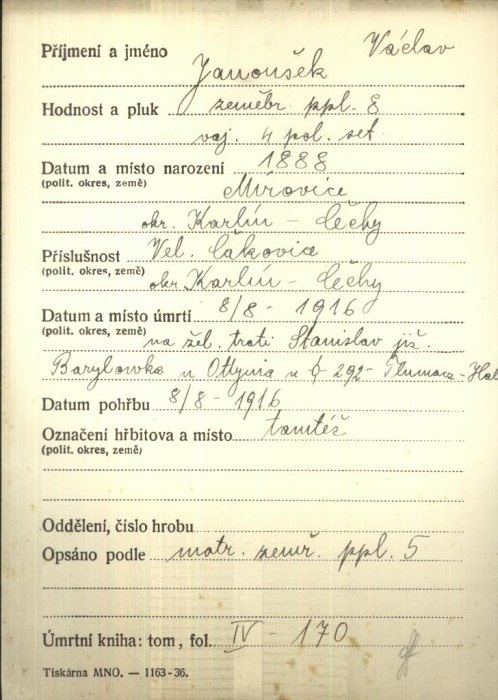 Příjmení a jméno Václav
Janoušek
Hodnost a pluk zeměbr. ppl. 8
voj. 4 pol. set.
Datum a místo narození 1888
(polit. okres, země) Mírovice
okr. Karlín - Čechy
Příslušnost Vel. Čakovice
(polit. okres, země) okr. Karlín - Čechy
Datum a místo úmrtí 8/8 - 1916
(polit. okres, země) na žel. trati Stanislav již.
Barylowka u Ottynia u 292 - Tlumacz - Hal
Datum pohřbu 8/8 - 1916
Označení hřbitova a místo tamtéž
(polit. okres, země)
Oddělení, číslo hrobu
Opsáno podle matr. zemř. ppl. 5
Úmrtní kniha: tom, fol. IV - 170
Tiskárna MNO. — 1163-36.